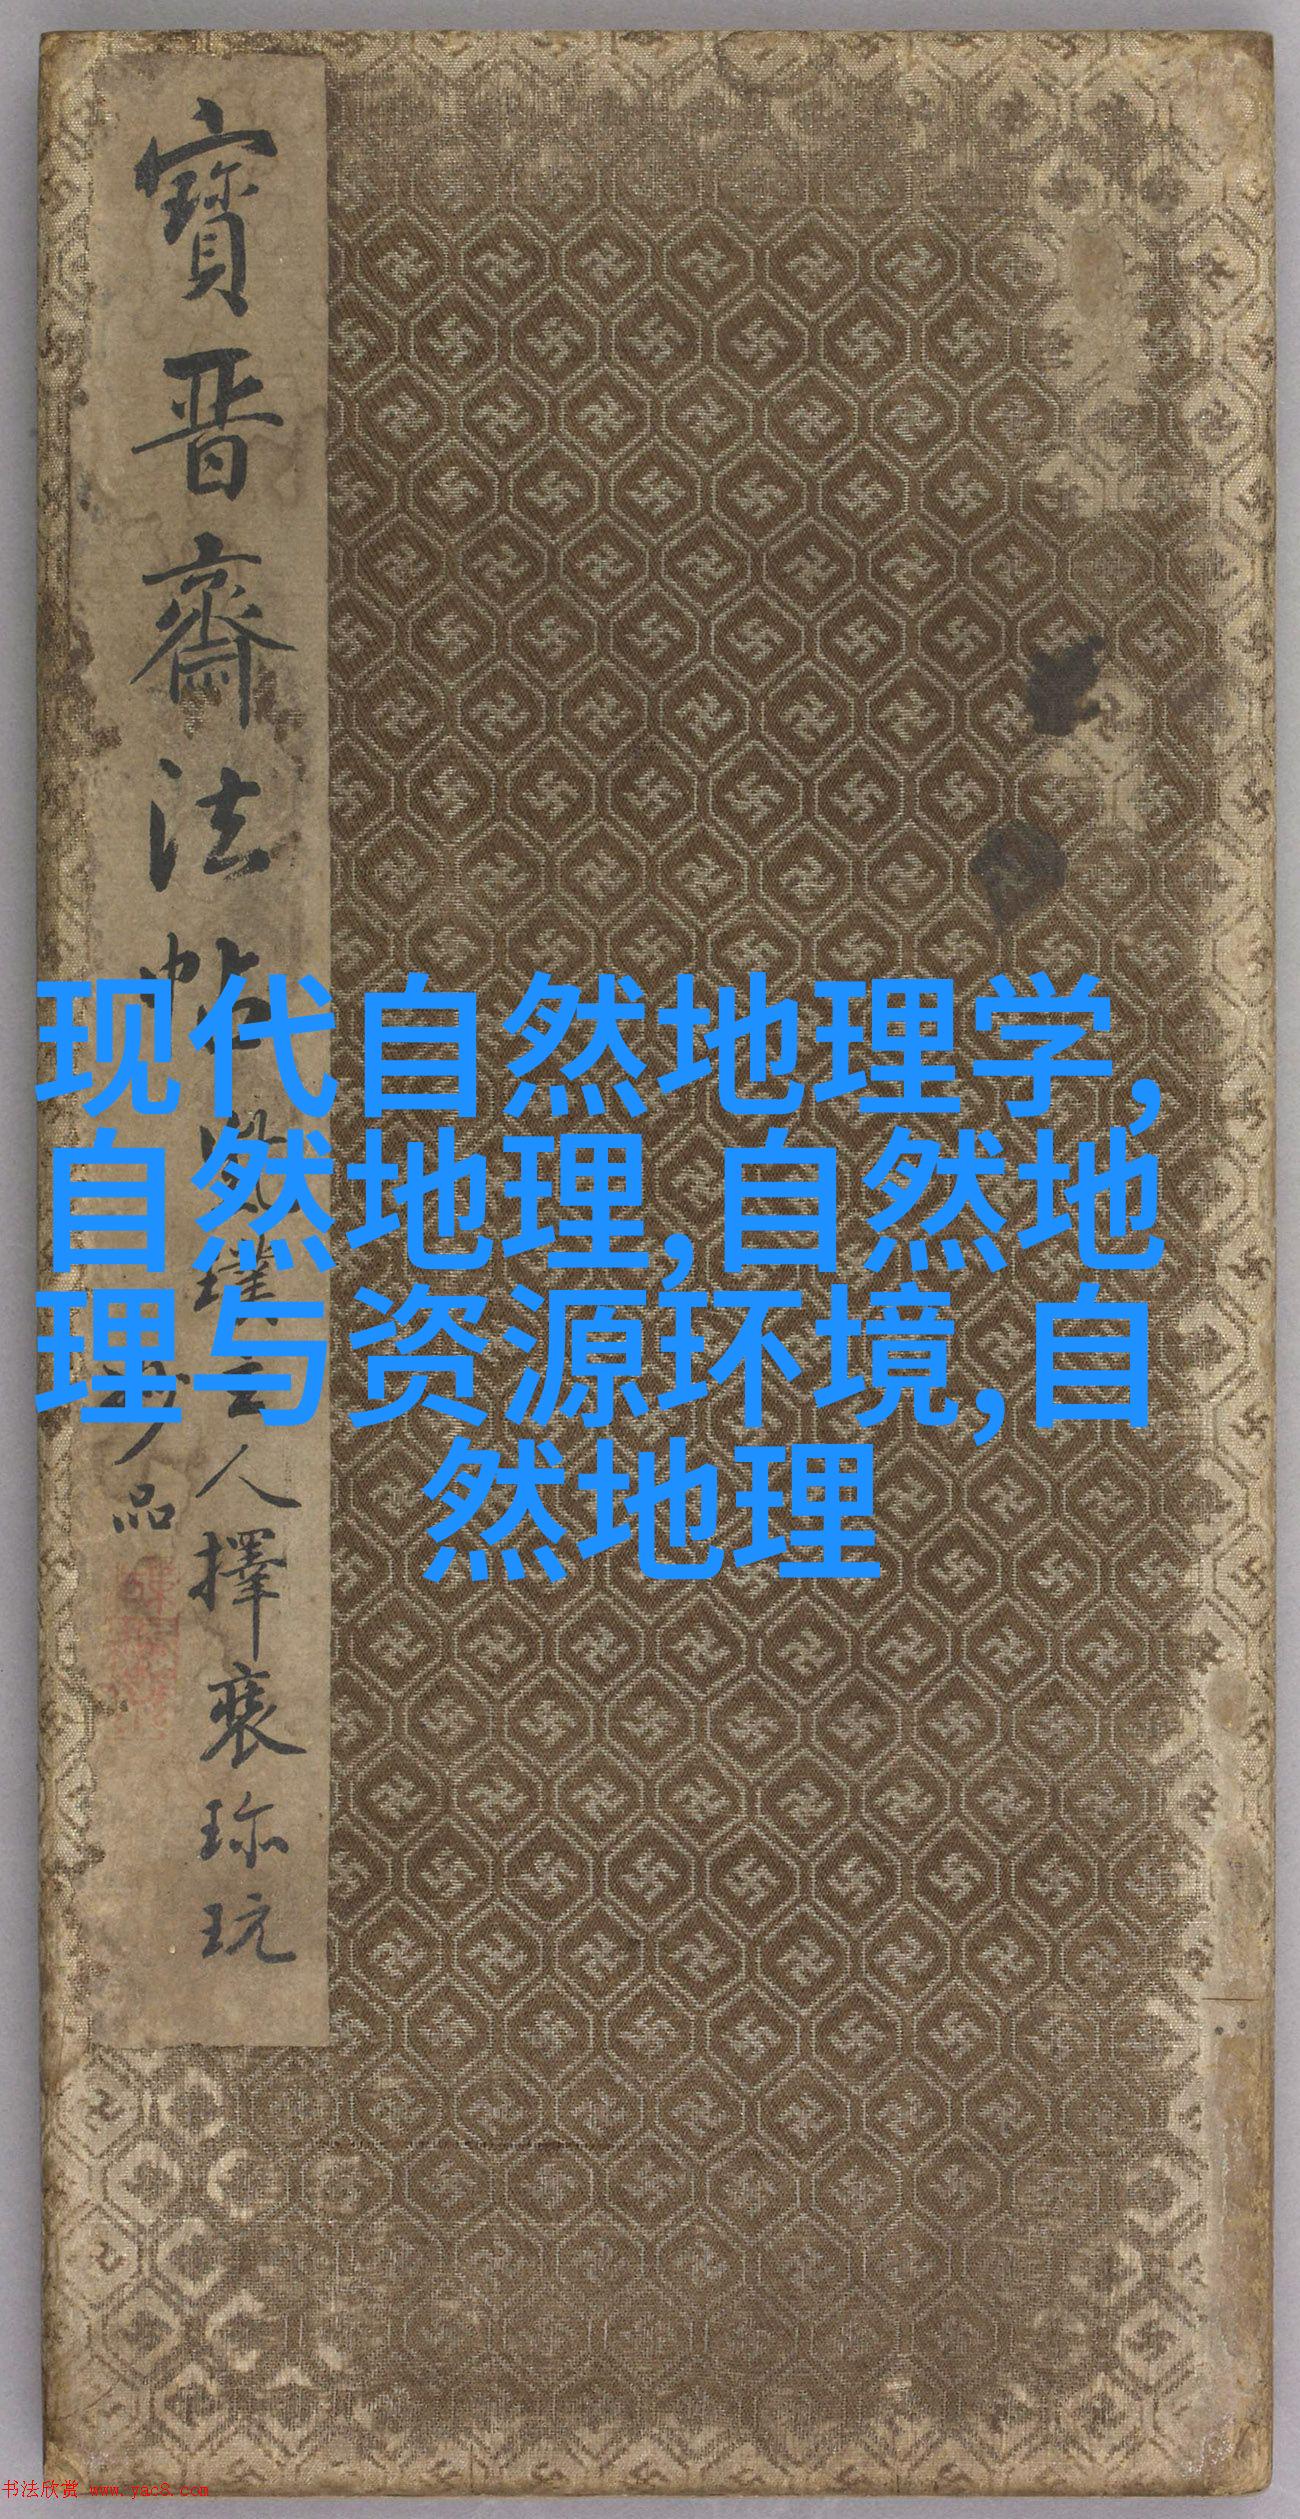 寶晋齋法帖
璞玉人擇裘珎玩
妙品
现代自然地理学,
自然地理,自然地
理与资源环境,自
然地理
书法欣赏 www.yac8.com